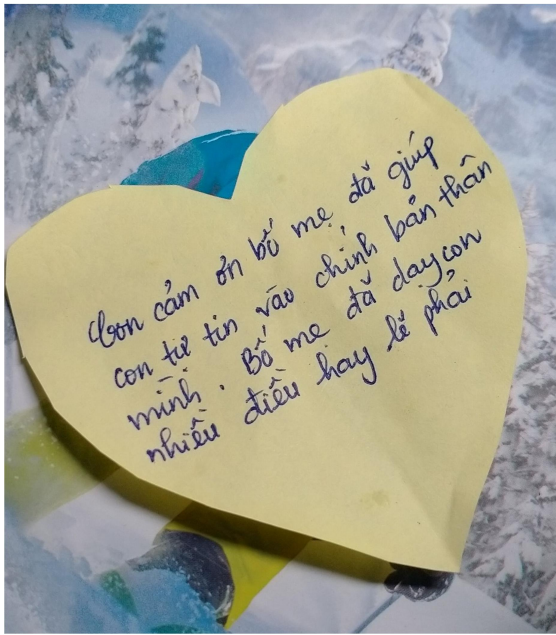 Con cảm ơn bố mẹ đã giúp
con tự tin vào chính bản thân
mình. Bố mẹ đã dạy con
nhiều điều hay lẽ phải